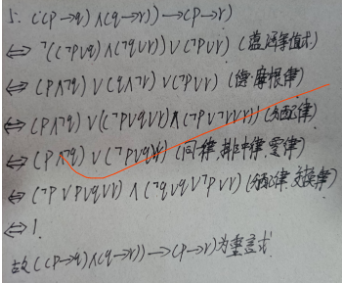 5. ((p→q)∧(q→r))→(p→r)
⇔ ¬((¬p∨q)∧(¬q∨r))∨(¬p∨r) (蕴涵等值式)
⇔ (p∧¬q)∨(q∧¬r)∨(¬p∨r) (德·摩根律)
⇔ (p∧¬q)∨((¬p∨q∨r)∧(¬p∨¬r∨r)) (分配律)
⇔ (p∧¬q)∨(¬p∨q∨r) (同一律,排中律,零律)
⇔ (¬p∨p∨q∨r)∧(¬q∨q∨¬p∨r) (分配律,交换律)
⇔ 1.
故((p→q)∧(q→r))→(p→r)为重言式